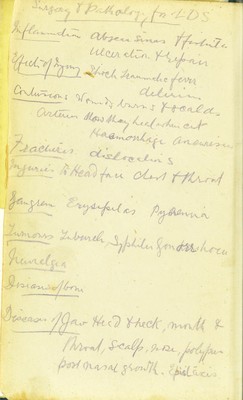 Surgery & Pathology for LDS
Inflammation abscess sinus & fistula
ulceration & repair
Effects of Injury Shock traumatic fever
delirium
Contusions Wounds burns & scalds
Arteries How they heal when cut
Haemorrhage Aneurism
Fractures dislocations
Injuries to Head face chest & throat
Gangrene Erysipelas Pyaemia
Tumours Tubercle Syphilis Gonorrhoea
Neuralgia
Diseases of bone
Diseases of Jaw Head & neck, mouth &
throat, scalp, nose, polypus
post nasal growth. Epistaxis